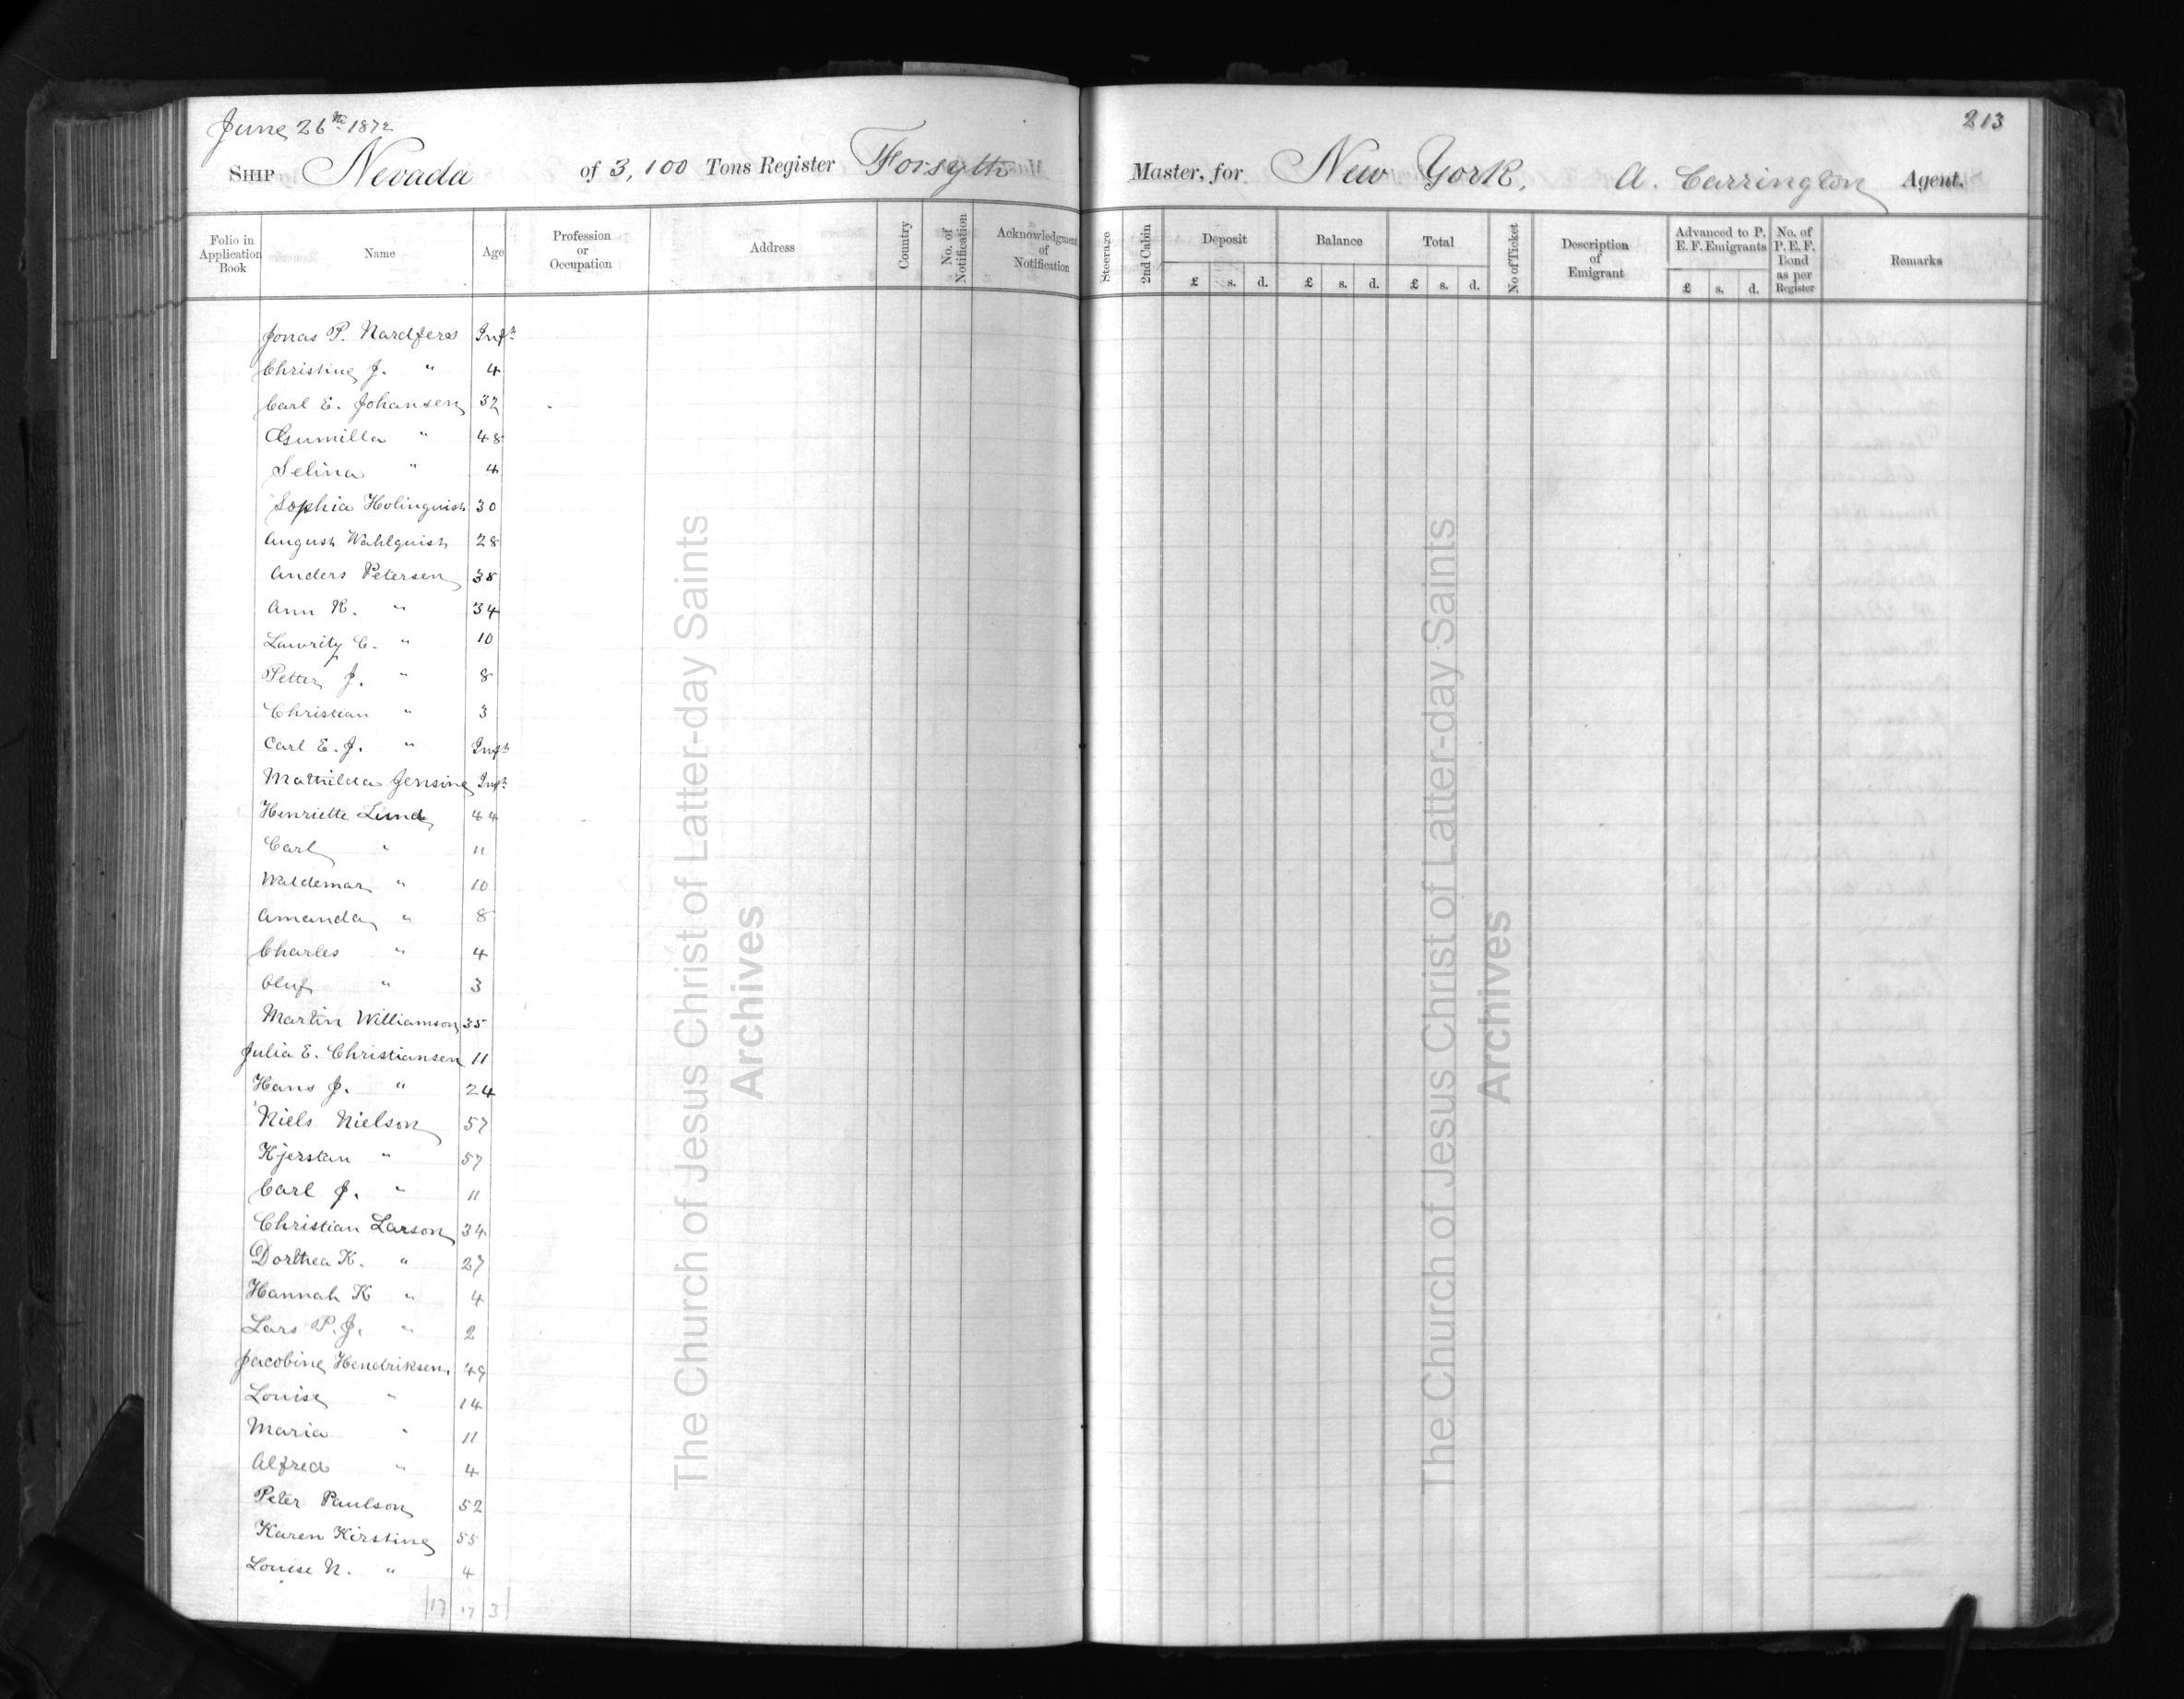 June 26th 1872
213
SHIP Nevada of 3,100 Tons Register Forsyth Master, for New York, A. Carrington Agent.
Folio in Application Book Name Age Profession or Occupation Address Country No. of Notification Acknowledgment of Notification Steerage 2nd Cabin Deposit Balance Total No of Ticket Description of Emigrant Advanced to P. E. F. Emigrants No. of P. E. F. Bond as per Register Remarks
£ s. d. £ s. d. £ s. d. £ s. d.
Jonas P. Inft
Christine J. " 4
Carl E. Johansen 32
Gumilla " 48
Selina " 4
Sophia Holinquist 30
August Wahlquist 28
Anders Petersen 38
Ann K. " 34
C. " 10
Petter J. " 8
Christian " 3
Carl E. J. " Inft
Mathilda Jensine Inft
Henriette Lund 44
Carl " 11
Waldemar " 10
Amanda " 8
Charles " 4
Oluf " 3
Martin Williamson 35
Julia E. Christiansen 11
Hans J. " 24
Niels Nielson 57
Kjerstan " 57
Carl J. " 11
Christian Larson 34
Dorthea K. " 27
Hannah K " 4
Lars P. J. " 2
Jacobine Hendriksen 49
Louise " 14
Maria " 11
Alfred " 4
Peter Paulson 52
Karen Kirstine 55
Louise N. " 4
17 17 3
The Church of Jesus Christ of Latter-day Saints
Archives
The Church of Jesus Christ of Latter-day Saints
Archives